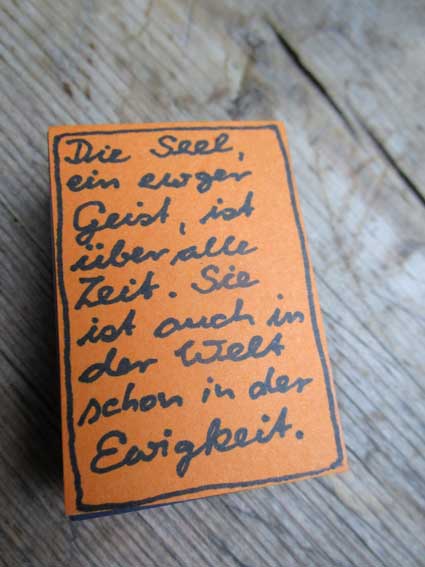 Die Seel,
ein ewger
Geist, ist
über alle
Zeit. Sie
ist auch in
der Welt
schon in der
Ewigkeit.